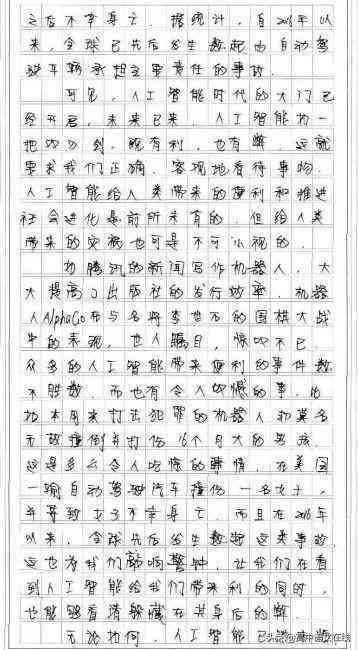 之后不幸身亡。据统计，自2016年以
来，全球已先后发生数起由自动驾
驶车辆承担主要责任的事故。
可见，人工智能时代的大门已
经开启，未来已来。人工智能如一
把双刃剑，既有利，也有弊，这就
要求我们正确、客观地看待事物。
人工智能给人类带来的便利和推进
社会进化是前所未有的，但给人类
带来的灾祸也可是不可小视的。
如腾讯的新闻写作机器人，大
大提高了出版社的发行效率，机器
人AlphaGo在与名将李世石的围棋大战
中的表现，世人瞩目，惊叹不已
众多的人工智能带来便利的事件数
不胜数。而也有令人吃惊的事，比
如本用来打击犯罪的机器人却莫名
无故撞倒并打伤16个月大的男孩，
这是多么令人吃惊的事情，在美国
一辆自动驾驶汽车撞伤一名女士，
并导致女子不幸身亡，而且在2016年
以来，全球先后发生数起这类事故，
这也为我们敲响警钟，让我们在看
到人工智能给我们带来利的同时，
也能够看清躲藏在其身后的弊。
无论如何，人工智能已
头条@高中语文在线